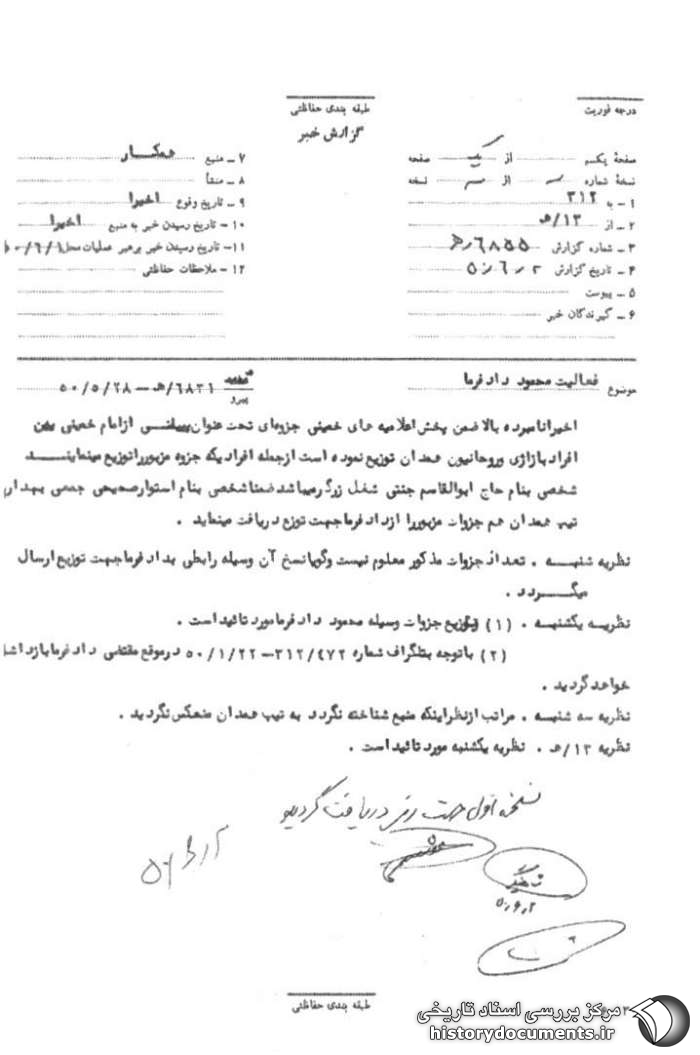 درجه فوریت
طبقه بندی حفاظتی
گزارش خبر
صفحهٔ یکم از یک صفحه
نسخهٔ شماره از نسخه
۱ – به ۳۱۲
۲ – از ۱۳/ه‍
۳ – شماره گزارش ۶۸۵۵/ه‍
۴ – تاریخ گزارش ۵۰/۶/۲
۵ – پیوست
۶ – گیرندگان خبر
۷ – منبع همکار
۸ – منشأ
۹ – تاریخ وقوع اخیرا
۱۰ – تاریخ رسیدن خبر به منبع اخیرا
۱۱ – تاریخ رسیدن خبر برهبر عملیات محل ۵۰/۶/۱
۱۲ – ملاحظات حفاظتی
موضوع فعالیت محمود دادفرما
پیرو ۶۸۳۱/ه‍ – ۵۰/۵/۲۸
اخیرا نامبرده بالا ضمن پخش اعلامیه های خمینی جزوه‌ای تحت عنوان از امام خمینی بین
افراد بازاری و روحانیون همدان توزیع نموده است از جمله افرادیکه جزوه مزبور را توزیع مینمایند
شخصی بنام حاج ابوالقاسم جنتی شغل زرگر میباشد ضمنا شخصی بنام استوار صحیحی جمعی بهداری
تیپ همدان هم جزوات مزبور را از دادفرما جهت توزع دریافت مینماید .
نظریه شنبه . تعداد جزوات مذکور معلوم نیست و گویا نسخ آن وسیله رابطی بدادفرما جهت توزیع ارسال
میگردد .
نظریه یکشنبه . (۱) توزیع جزوات وسیله محمود دادفرما مورد تائید است .
(۲) با توجه بتلگراف شماره ۳۱۲/۴۷۲ – ۵۰/۱/۲۲ در موقع مقتضی دادفرما بازداشت
خواهد گردید .
نظریه سه شنبه . مراتب از نظر اینکه منبع شناخته نگردد به تیپ همدان منعکس نگردید .
نظریه ۱۳/ه‍ . نظریه یکشنبه مورد تائید است .
نسخه اول جهت دریافت گردید
۵۰/۶/۲
طبقه بندی حفاظتی
مرکز بررسی اسناد تاریخی
historydocuments.ir